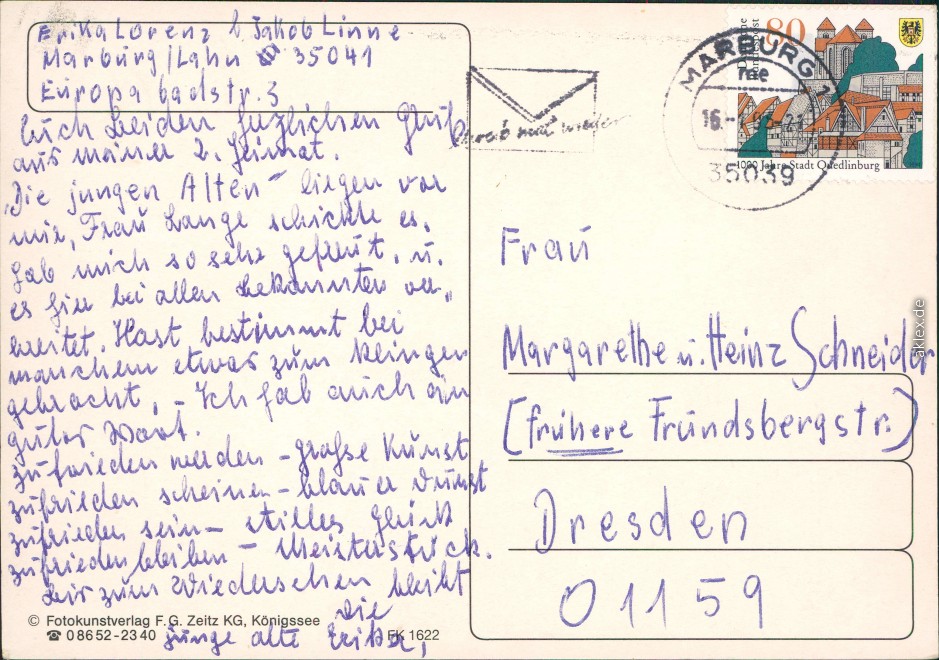 Erika Lorenz b. Jakob Linne
Marburg/Lahn 35041
Europabadstr. 3
Euch beiden herzlichen Gruß
aus meiner 2. Heimat.
"Die jungen Alten" liegen vor
mir, Frau Lange schickte es.
Hab mich so sehr gefreut, u.
es hier bei allen Bekannten ver„
breitet. Hast bestimmt bei
manchem etwas zum klingen
gebracht. – Ich hab auch ein
gutes Wort.
zufrieden werden – große Kunst
zufrieden scheinen – blauer Dunst
zufrieden sein – stilles Glück
zufrieden bleiben – Meisterstück.
Bis zum Wiedersehen bleibt
die
junge alte Erika,
© Fotokunstverlag F. G. Zeitz KG, Königssee
☎ 0 86 52 - 23 40
FK 1622
Schreib mal wieder
MARBURG 1
16.
35039
Deutsche Bundespost
80
1000 Jahre Stadt Quedlinburg
Frau
Margarethe u. Heinz Schneider
(frühere Frundsbergstr.)
Dresden
01159
aklex.de